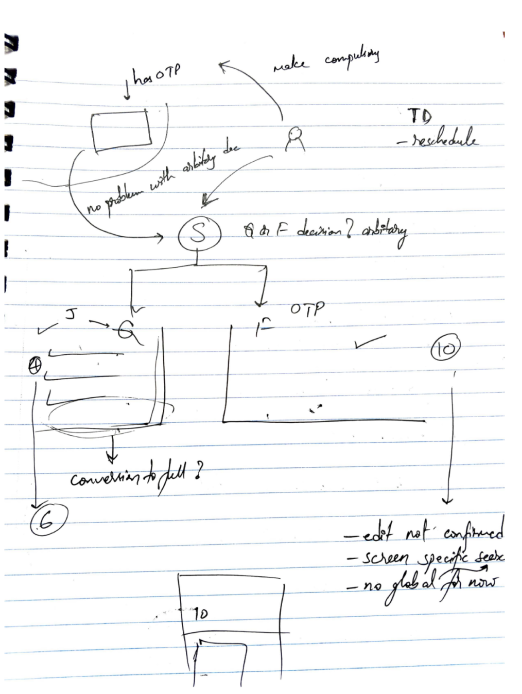 has OTP
make compulsory
TD
- reschedule
no problem with arbitary dec
S
Q or F decision? arbitary
J
Q
F
OTP
4
10
conversion to full?
6
- edit not confirmed
- screen specific
- no global for now
TD